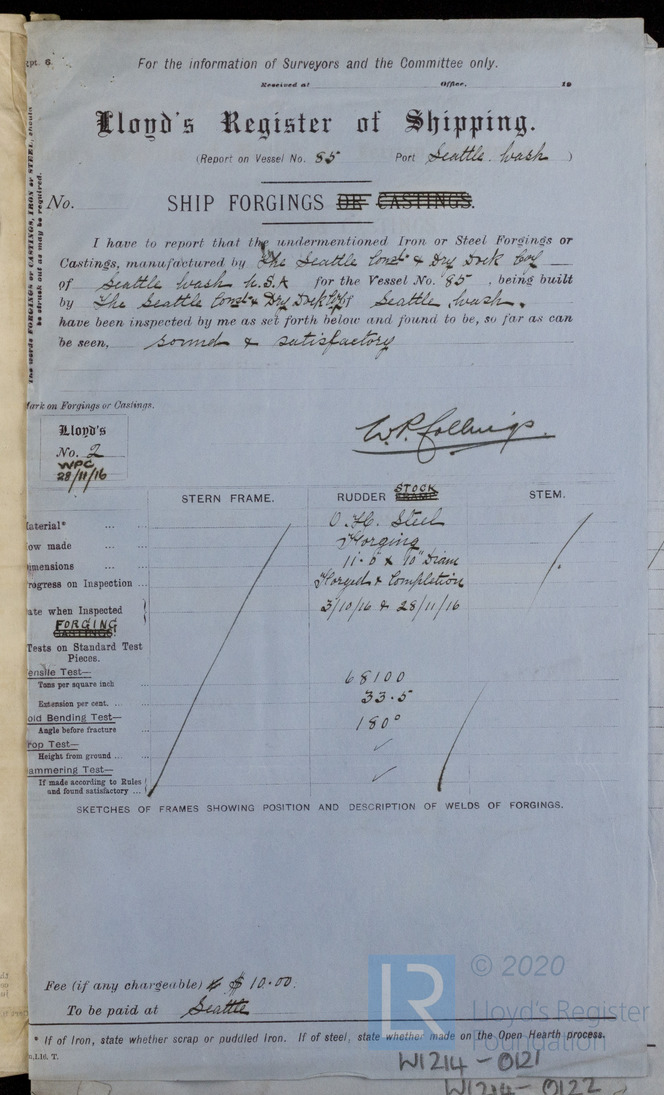 pt. 6
For the information of Surveyors and the Committee only.
Received at Office, 19
Lloyd's Register of Shipping.
(Report on Vessel No. 85 Port Seattle. Wash )
No. SHIP FORGINGS OR CASTINGS.
The words FORGINGS or CASTINGS, IRON or STEEL, should
be struck out as may be required.
I have to report that the undermentioned Iron or Steel Forgings or
Castings, manufactured by The Seattle Const & Dry Dock Coy
of Seattle Wash U.S.A for the Vessel No. 85 , being built
by The Seattle Const & Dry Dock Coy of Seattle, Wash.
have been inspected by me as set forth below and found to be, so far as can
be seen, sound & satisfactory
Mark on Forgings or Castings.
Lloyd's
No. 2
WPC
28/11/16
W.P. Collings.
STERN FRAME. RUDDER STOCK FRAME STEM.
aterial* ... ... O.H. Steel
ow made ... ... Forging
imensions ... ... 11'-6" x 10" Diam
rogress on Inspection ... Forged & Completion
ate when Inspected 3/10/16 & 28/11/16
FORGING
CASTINGS!
Tests on Standard Test
Pieces.
ensile Test—
Tons per square inch ... 68100
Extension per cent. ... ... 33.5
old Bending Test—
Angle before fracture ... 180°
rop Test—
Height from ground ... ... ✓
ammering Test—
If made according to Rules ✓
and found satisfactory ...
SKETCHES OF FRAMES SHOWING POSITION AND DESCRIPTION OF WELDS OF FORGINGS.
Fee (if any chargeable) $ 10.00.
To be paid at Seattle
* If of Iron, state whether scrap or puddled Iron. If of steel, state whether made on the Open Hearth process.
LR
© 2020
Lloyd's Register
Foundation
W1214-0121
W1214-0122